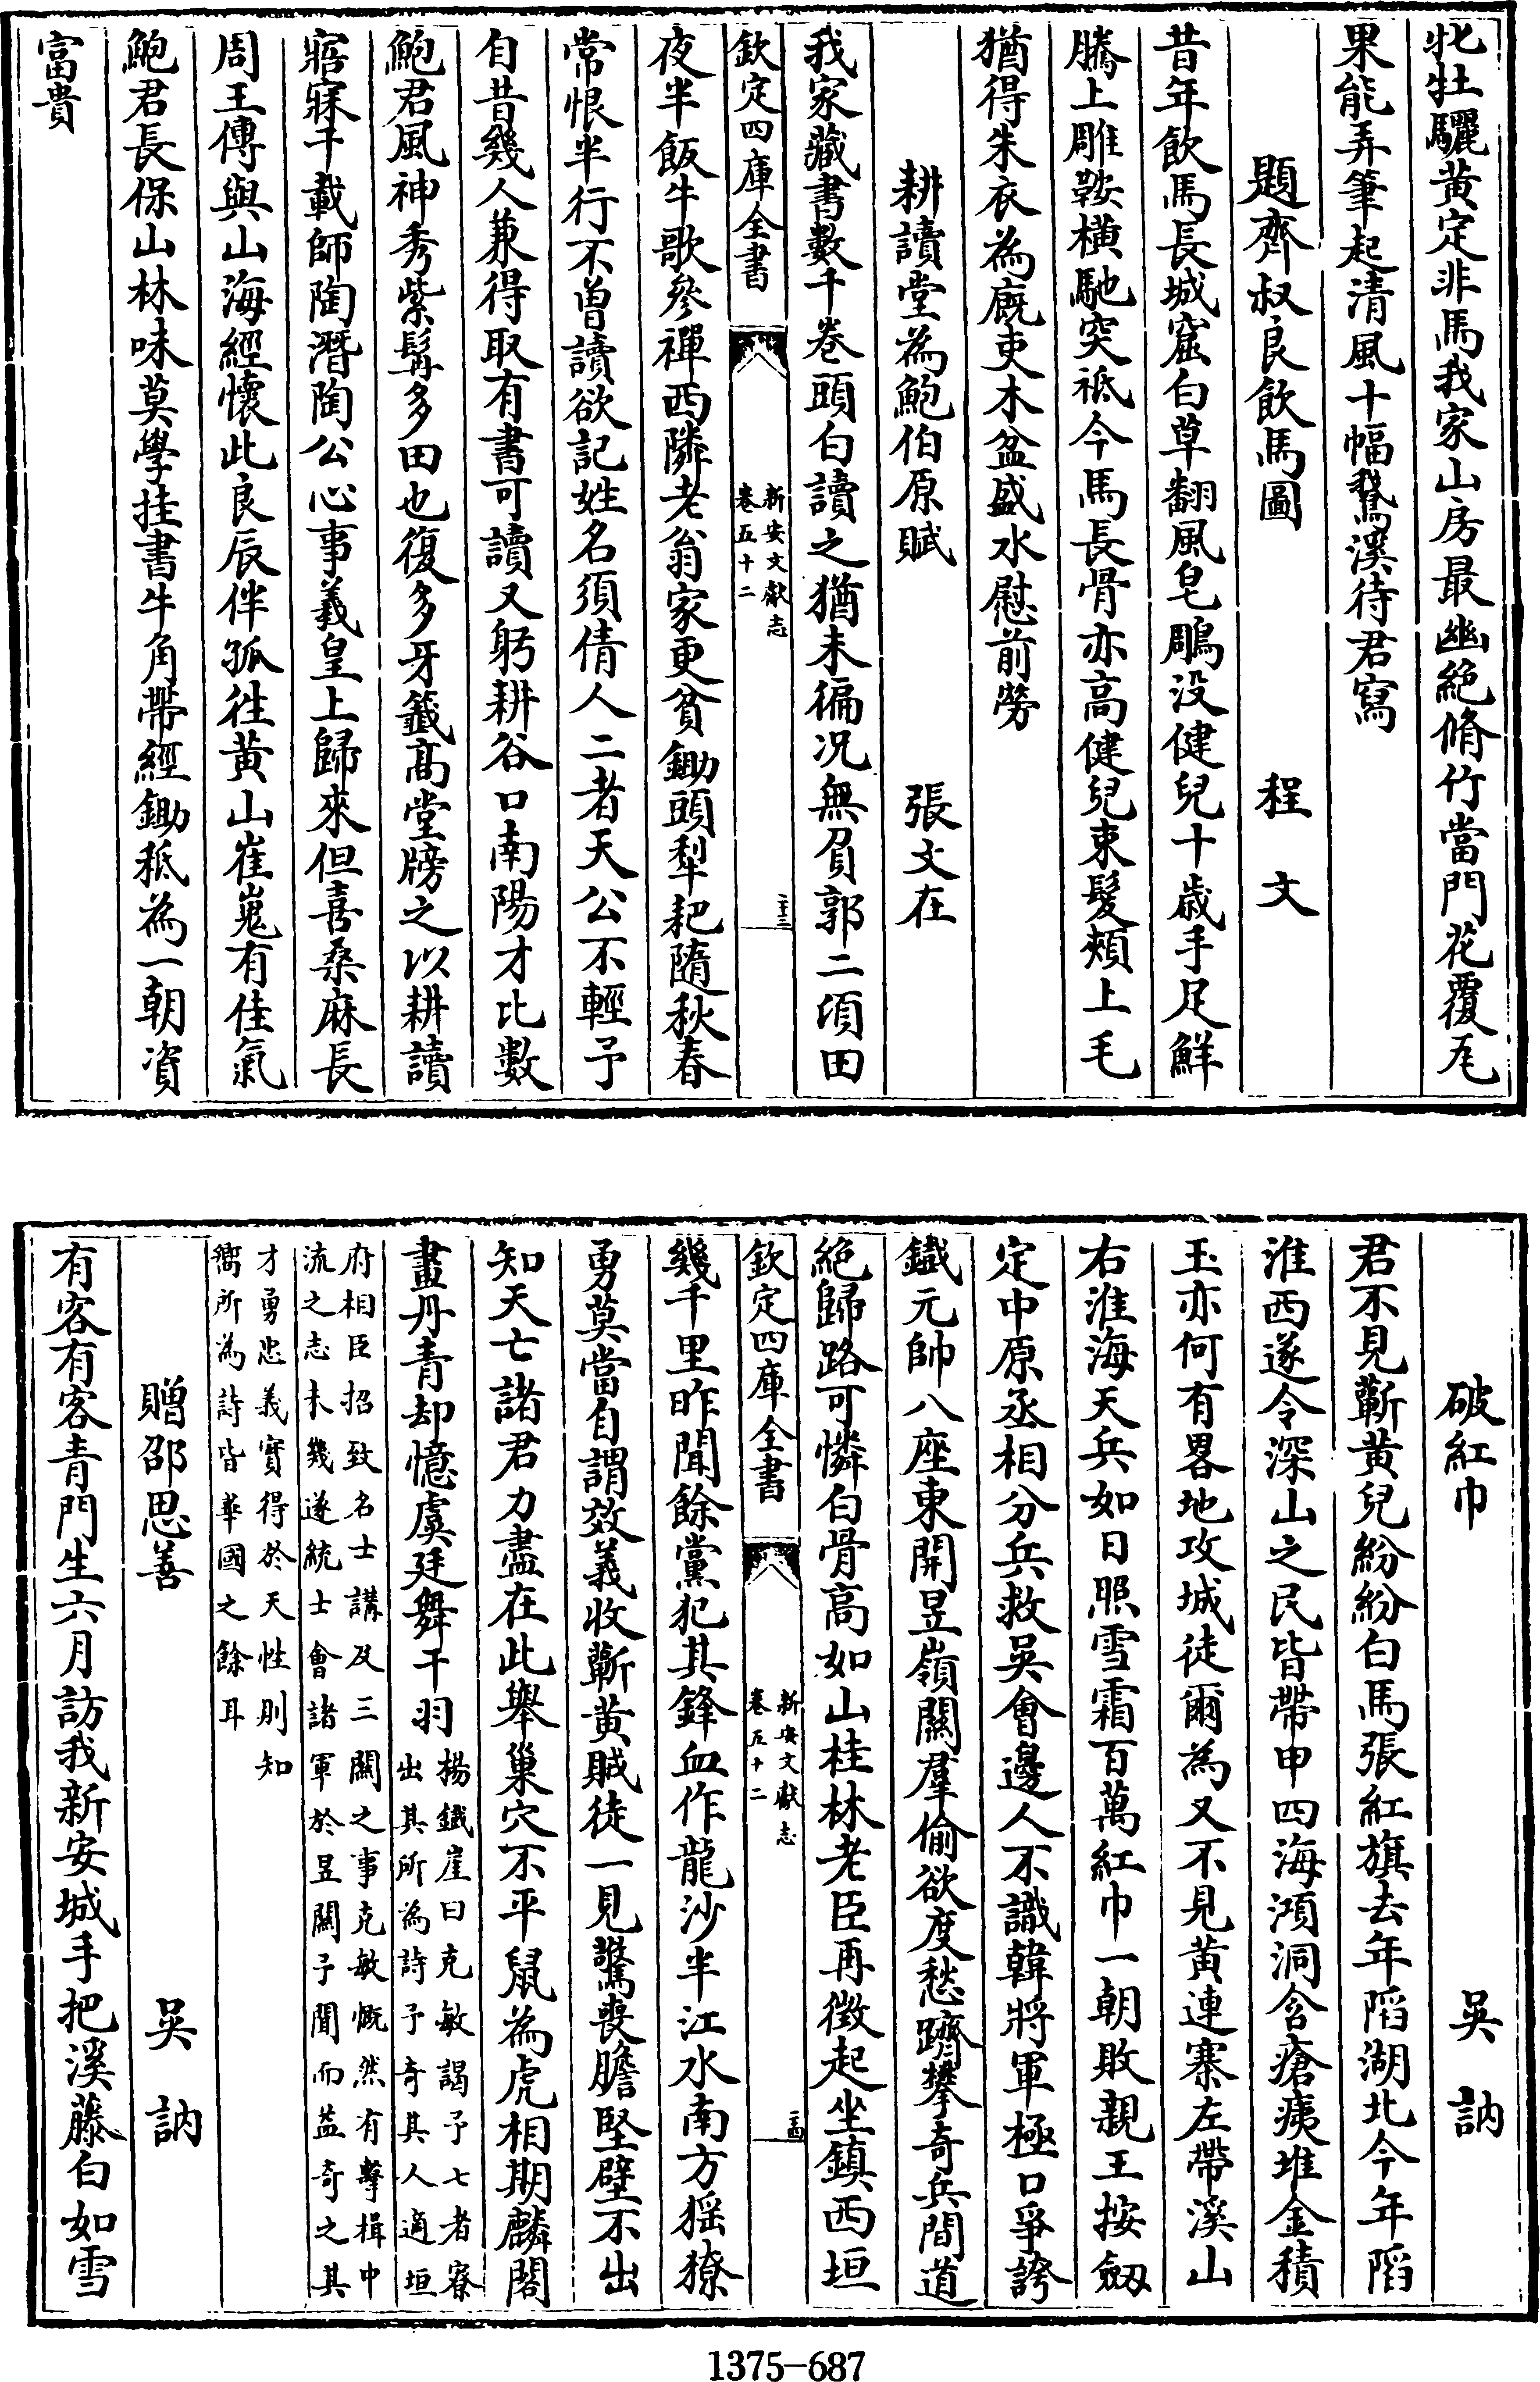 牝牡驪黄定非馬我家山房最幽絶脩竹當門花覆瓦
果能弄筆起清風十幅鵞溪待君寫
題齊叔良飲馬圖　程文
昔年飲馬長城窟白草翻風皂鵰没健兒十歳手足鮮
騰上雕鞍横馳突祗今馬長骨亦高健兒束髮頰上毛
猶得朱衣為廐吏木盆盛水慰前勞
耕讀堂為鮑伯原賦　張文在
我家藏書數千巻頭白讀之猶未徧况無負郭二頃田
欽定四庫全書
新安文獻志
卷五十二
二十三
夜半飯牛歌參禪西隣老翁家更貧鋤頭犁耙隨秋春
常恨半行不曽讀欲記姓名須倩人二者天公不輕予
自昔幾人兼得取有書可讀又躬耕谷口南陽才比數
鮑君風神秀紫髯多田也復多牙籤髙堂牓之以耕讀
寤寐千載師陶潛陶公心事羲皇上歸來但喜桑麻長
周王傳與山海經懷此良辰伴孤徃黄山崔嵬有佳氣
鮑君長保山林味莫學挂書牛角帶經鋤秖為一朝資
富貴
破紅巾　吳訥
君不見蘄黄兒紛紛白馬張紅旗去年䧟湖北今年䧟
淮西遂令深山之民皆帶甲四海澒洞含瘡痍堆金積
玉亦何有畧地攻城徒爾為又不見黄連寨左帶溪山
右淮海天兵如日照雪霜百萬紅巾一朝敗親王按劔
定中原丞相分兵救吳會邊人不識韓將軍極口爭誇
鐡元帥八座東開昱嶺關羣偷欲度愁躋攀奇兵間道
絶歸路可憐白骨高如山桂林老臣再徴起坐鎮西垣
欽定四庫全書
新安文獻志
卷五十二
二十四
幾千里昨聞餘黨犯其鋒血作龍沙半江水南方猺獠
勇莫當自謂效義收蘄黄賊徒一見驚喪膽堅壁不出
知天亡諸君力盡在此舉巢穴不平鼠為虎相期麟閣
畫丹青却憶虞廷舞干羽
楊鐡崖曰克敏謁予七者寮
出其所為詩予奇其人適垣
府相臣招致名士講及三關之事克敏慨然有擊楫中
流之志未幾遂統士會諸軍於昱關予聞而益奇之其
才勇忠義實得於天性則知
嚮所為詩皆華國之餘耳
贈邵思善　吳訥
有客有客青門生六月訪我新安城手把溪藤白如雪
1375-687